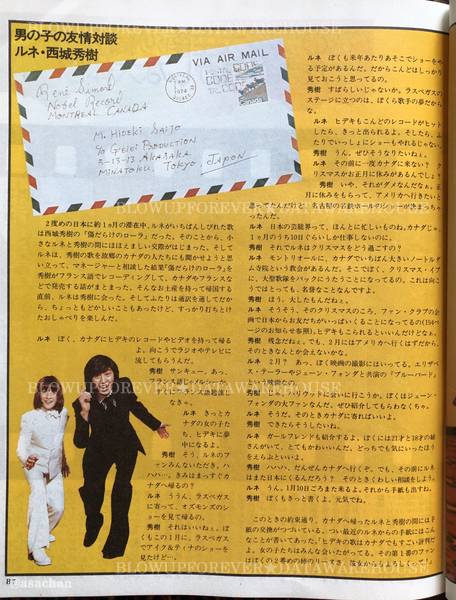 男の子の友情対談
ルネ・西城秀樹
VIA AIR MAIL
René Simard
Nobel Record
MONTREAL CANADA
1974
CODE
Canada
Mr. HIDEKI SAIJO
c/o GEIEI PRODUCTION
2-13-13, AKASAKA
MINATOKU, TOKYO JAPON
BLOWUPFOREVER☆DATAWAREHOUSE
2度めの日本に約1ヵ月の滞在中、ルネがいちばんしびれた歌
は西城秀樹の「傷だらけのローラ」だった。そのことから、小
さなルネと秀樹の間にはほほえましい交際がはじまった。そして
ルネは、秀樹の歌を故郷のカナダの人たちにも聞かせようと思
い立って、マネージャーと相談した結果「傷だらけのローラ」を
秀樹がフランス語でレコーディングして、カナダやフランスな
どで発売する話がまとまった。そんなお土産を持って帰国する
直前、ルネは秀樹に会った。そしてふたりは通訳を通してだか
ら、ちょっともどかしいこともあったけど、すっかり打ちとけ
たおしゃべりを楽しんだ。
ルネ ぼく、カナダにヒデキのレコードやビデオを持って帰る
よ。向こうでラジオやテレビに
流してもらうんだ。
秀樹 サンキュー。あっ、
ルネ きっとカ
ナダの女の子た
ち、ヒデキに夢
中になるよ。
秀樹 そう、ルネのフ
ァンみんないただき、ハ
ハハ…。きみはまっすぐカ
ナダへ帰るの?
ルネ ううん、ラスベガス
に寄って、オズモンズのシ
ョーを見て帰るの。
秀樹 それはいいねぇ。ぼ
くもこの1月に、ラスベガス
でアイク&ティナのショーを
見たけど…。
ルネ ぼくも来年あたりあそこでショーをや
る予定があるんだ。だからこんどはしっかり
見ておこうと思ってるの。
秀樹 すばらしいじゃないか。ラスベガスの
ステージに立つのは、ぼくら歌手の夢だから
な。
ルネ ヒデキもこんどのレコードがヒット
したら、きっと出られるよ。そしたら、ふ
たりでいっしょにショーもやれるじゃない。
秀樹 うん、ぜひそうなりたいねぇ。
ルネ その前に一度カナダに来ない? ク
リスマスかお正月に休みがあるんでしょ?
秀樹 いや、それがダメなんだなぁ。正
月に休みをもらって、アメリカへ行きたいと
思ってたんだけど、名古屋の名鉄ホールのショーが決まっちゃ
ったんだ。
ルネ 日本の芸能界って、ほんとに忙しいものね。カナダじゃ、
1ヵ月のうち10日ぐらいしか仕事しないのに。
秀樹 それでルネはクリスマスをどう過すの?
ルネ モントリオールに、カナダでいちばん大きいノートルダ
ム寺院という教会があるんだ。そこでぼく、クリスマス・イブ
に、大聖歌隊をバックにうたうことになってるの。これは向こ
うではとっても、名誉なことなんですよ。
秀樹 ほう、大したもんだねぇ。
ルネ そうそう、そのクリスマスのころ、ファン・クラブの企
画で日本からお友だちがいっぱいくることになってるの(194ペ
ージのお知らせ参照)。ヒデキもこられるといいんだけどなぁ。
秀樹 残念だねぇ。でも、2月にはアメリカへ行くはずだから、
そのときなんとか会えないかな。
ルネ 2月? あっ、ぼく映画の撮影にはいってる。エリザベ
ス・テーラーやジェーン・フォンダと共演の「ブルーバード」
って映画なの。
秀樹 じゃ、ハリウッドに会いに行こうか。ぼくはジェーン・
フォンダの大ファンなんだ。ぜひ紹介してもらわなくちゃ。
ルネ そうだ。そのときカナダに寄ればいいよ。
秀樹 できたらそうしたいね。
ルネ ガールフレンドも紹介するよ。ぼくには21才と18才の姉
さんがいて、とてもかわいいんだ。どっちでも気にいったほう
をえらぶといいよ。
秀樹 ハハハ、だんぜんカナダへ行くぞ。でも、その前にルネ
はまた日本にくるんだろう? そのときくわしい相談をしよう。
ルネ うん、1月10日ごろまた来るよ。それから手紙も出すね。
秀樹 ぼくもきっと書くよ。元気でね。
このときの約束通り、カナダへ帰ったルネと秀樹の間には手
紙の交換がつづいている。つい最近のルネからの手紙にはこん
なことが書いてあった。「ヒデキの歌はカナダでもすごい評判だ
よ。女の子たちはみんな会いたがってる。その第1番のファン
はぼくの2番めの姉のリーヌ。彼女からもよろしく」
BLOWUPFOREVER☆DATAWAREHOUSE
asachan